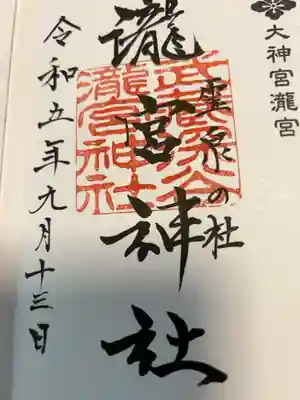 大神宮瀧宮
霊泉の杜
瀧宮神社
武蔵深谷
瀧宮神社
令和五年九月十三日